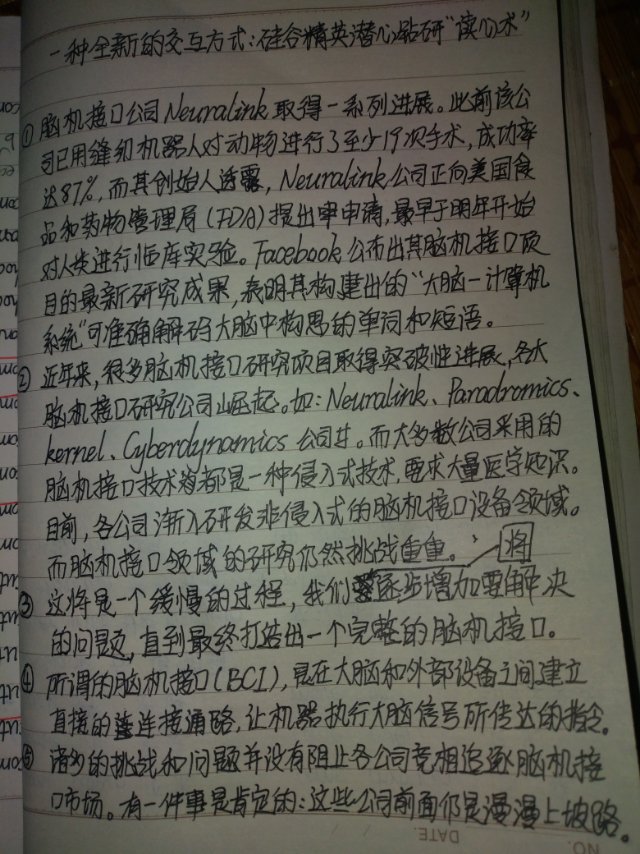 一种全新的交互方式:硅谷精英潜心钻研“读心术”
① 脑机接口公司Neuralink取得一系列进展。此前该公
司已用缝纫机器人对动物进行了至少19次手术,成功率
达87%,而其创始人透露,Neuralink公司正向美国食
品和药物管理局(FDA)提出申请,最早于明年开始
对人类进行临床实验。Facebook公布出其脑机接口项
目的最新研究成果,表明其构建出的“大脑-计算机
系统”可准确解码大脑中构思的单词和短语。
② 近年来,很多脑机接口研究项目取得突破性进展,各大
脑机接口研究公司崛起。如:Neuralink、Paradromics、
kernel、Cyberdynamics公司等。而大多数公司采用的
脑机接口技术都是一种侵入式技术,要求大量医学知识。
目前,各公司渐入研发非侵入式的脑机接口设备领域。
而脑机接口领域的研究仍然挑战重重。
③ 这将是一个缓慢的过程,我们将逐步增加要解决
的问题,直到最终打造出一个完整的脑机接口。
④ 所谓的脑机接口(BCI),是在大脑和外部设备之间建立
直接的连接通路,让机器执行大脑信号所传达的指令。
⑤ 诸多的挑战和问题并没有阻止各公司竞相追逐脑机接
口市场。有一件事是肯定的:这些公司前面仍是漫漫上坡路。
NO.
DATE.